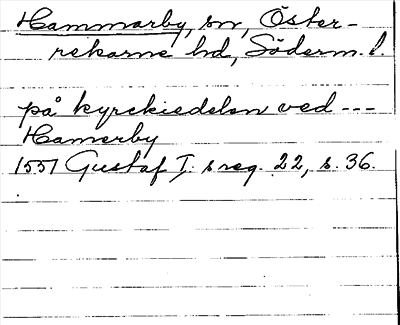 Hammarby, sn, Öster-
rekarne hd, Söderm. l.
på kyrckiedelen ved ---
Hamerby
1551 Gustaf I:s reg. 22, s. 36.